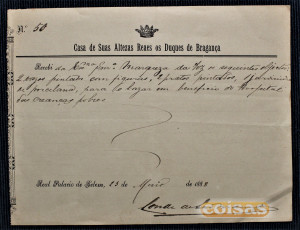 N.º 50
Casa de Suas Altezas Reaes os Duques de Bragança
Recebi da Exma Snra Marqueza da Foz os seguintes objectos
2 vasos pintados com figuras, 2 pratos pintados,
de porcelana, para o bazar em beneficio do Hospital
das creanças pobres
Real Palacio de Belem, 15 de Maio de 188
Conde de
coisas